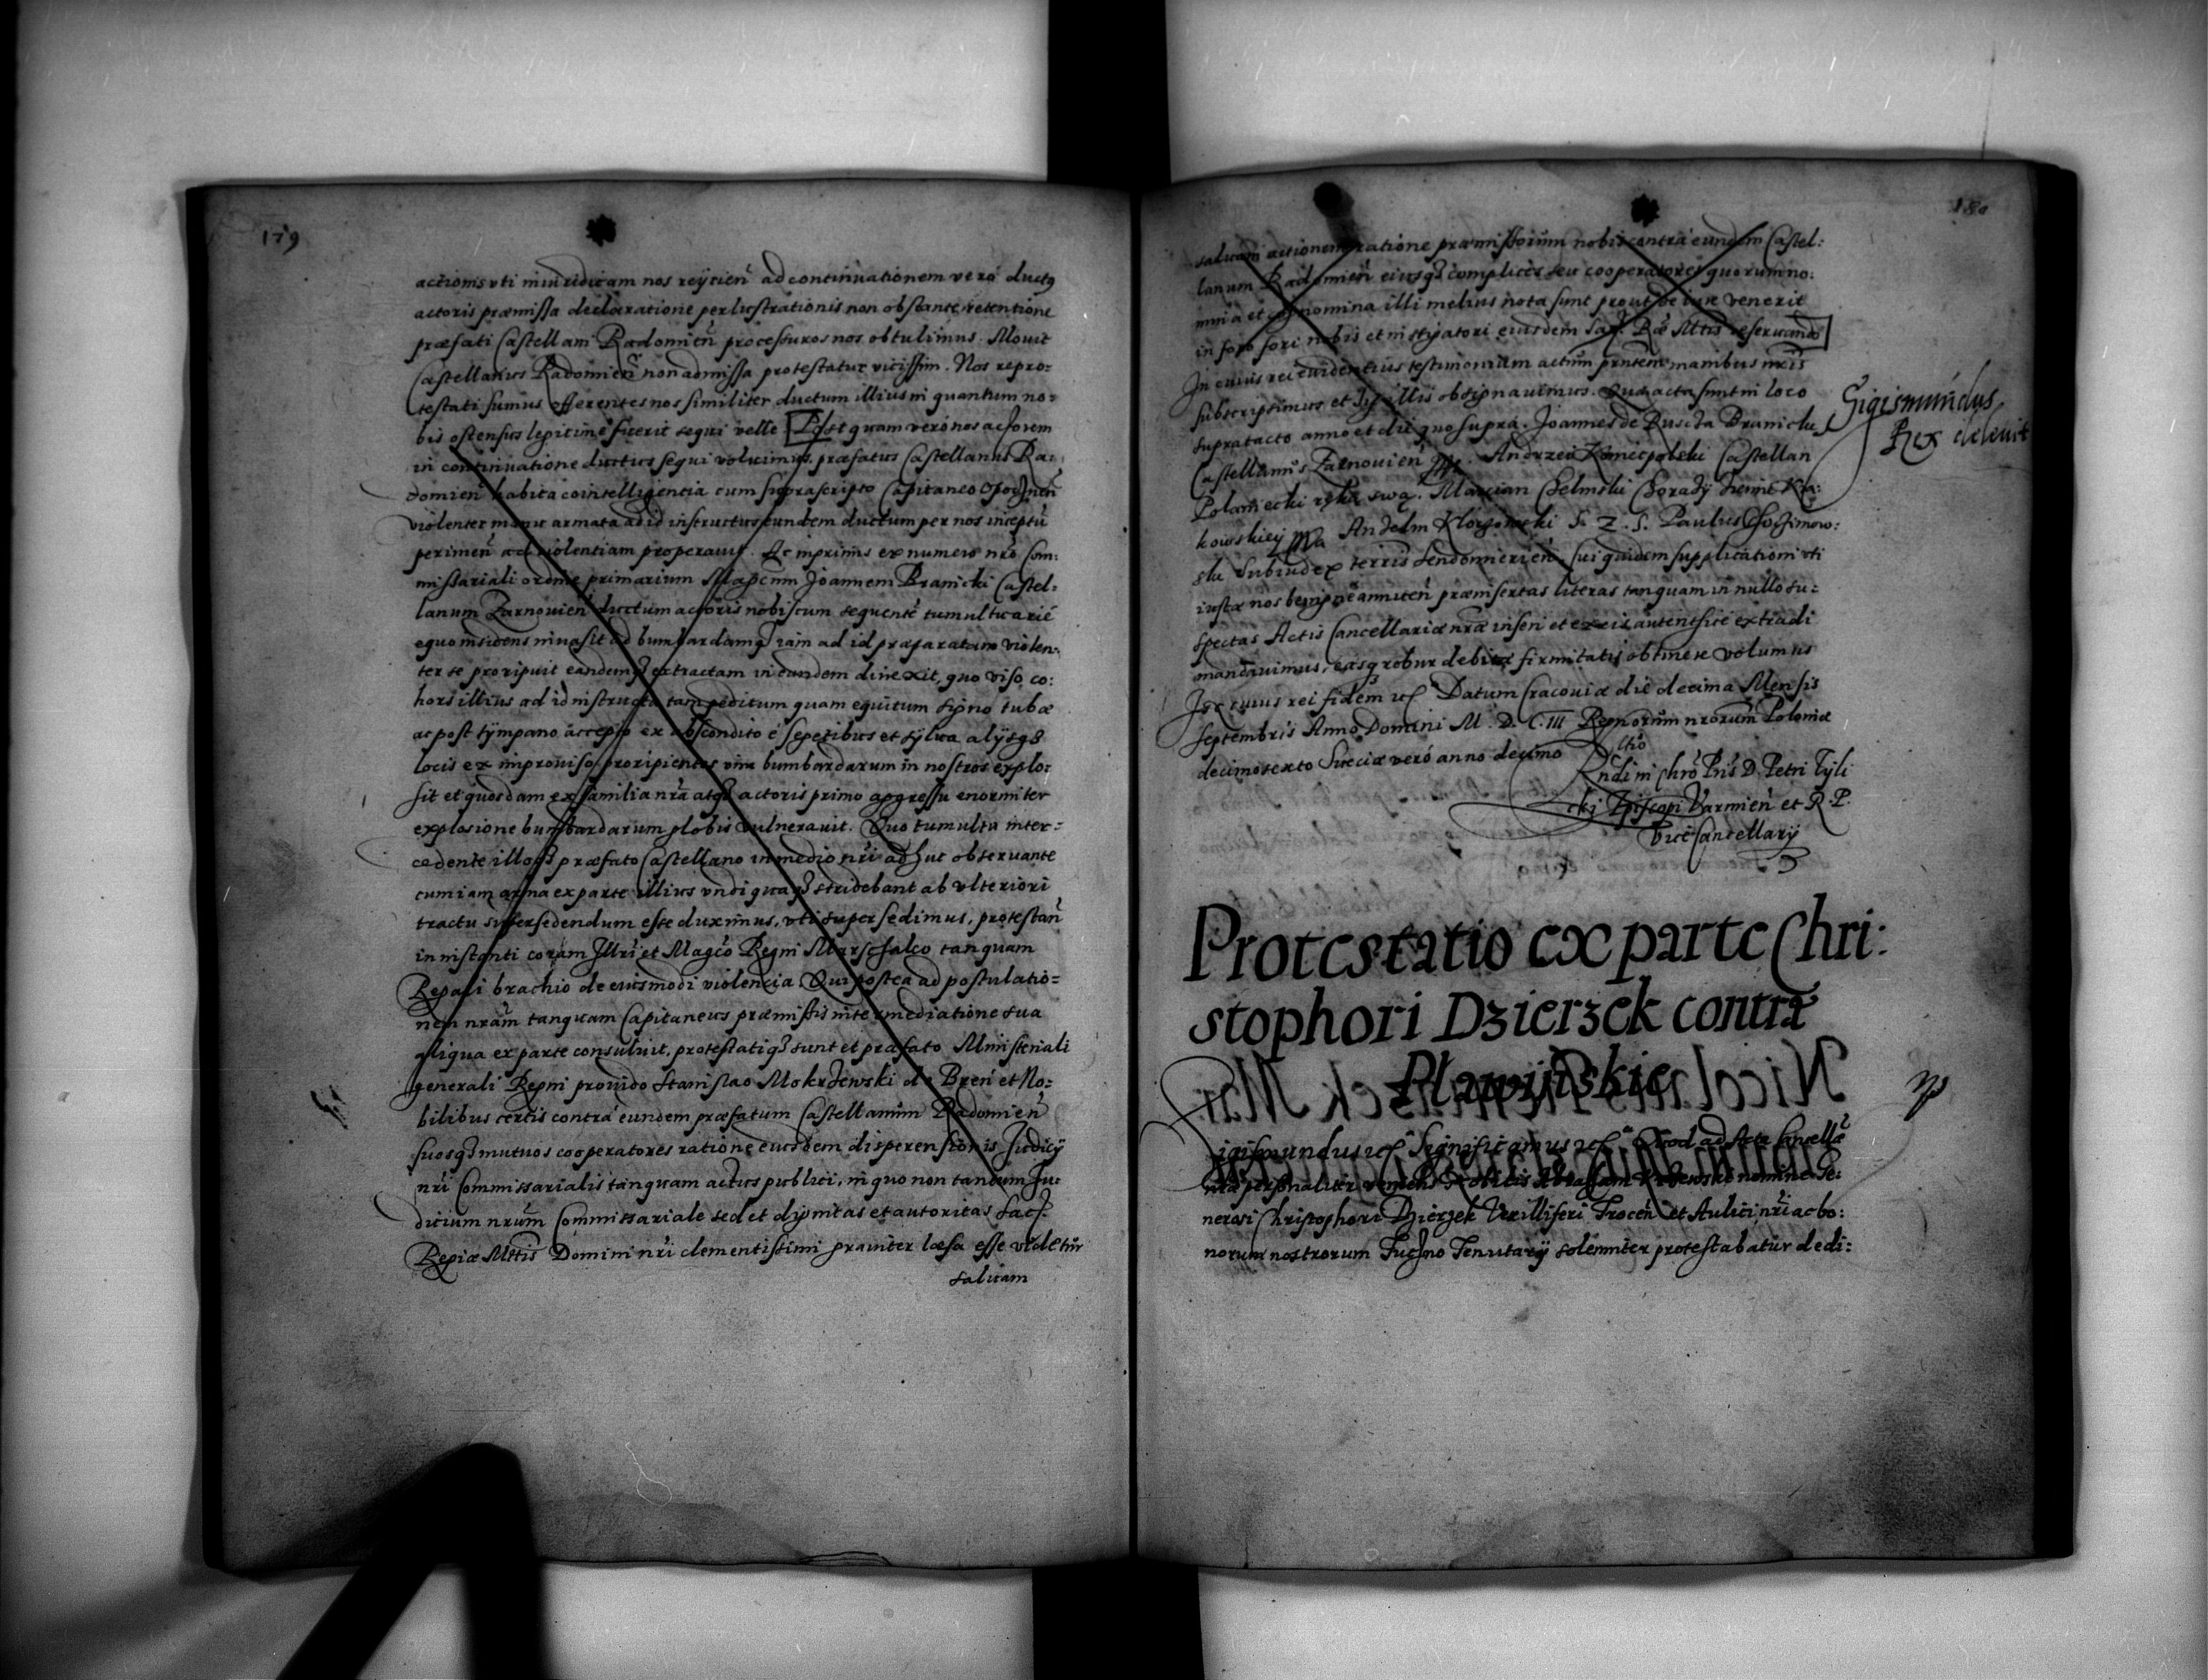 179
actionis uti iniuridicam nos reÿcien̄ ad continuationem vero ductq
actoris præmissa declaratione perlustrationis non obstante retentione
præfati Castellani Radomien̄ processuros nos obtulimus. Mouit
Castellanus Radomien̄ non admissa protestatur vicissim. Nos repro:
testati sumus offerentes nos similiter ductum illius in quantum no:
bis ostensus legitime fuerit sequi velle. Postquam vero nos actorem
in continuatione ductus sequi voluimus, præfatus Castellanus Ra:
domien̄ habita cointelligentia cum suprascripto Capitaneo
violenter manu armata ad id instructus eundem ductum per nos inceptū
perimen̄ ad violentiam properauit. Ac inprimis ex numero nrō Com:
missariali ordine primarium Joannem Branicki Castel:
lanum Zarnouien̄ ductum actoris nobiscum sequente tumultuarié
equo insidens inuasit ad bumbardamq3 iam ad id præparatam violen:
ter se proripuit eandemq3 extractam in eundem direxit, quo viso co:
hors illius ad id instructa tam peditum quam equitum signo tubæ
ac post tÿmpano accepto ex abscondito é sepetibus et sÿlua alÿsq3
locis ex improuiso proripientes vim bumbardarum in nostros explo:
sit et quosdam ex familia nr̄a atq3 actoris primo aggressu enormiter
explosione bumbardarum globis vulnerauit. Quo tumultu inter:
cedente illoq3 præfato Castellano in medio nr̄i adhuc obseruante
cum iam arma ex parte illius undiquaq3 stridebant ab ulteriori
tractu supersedendum esse duximus, uti supersedimus, protestan̄
in instanti coram Illri et Magco Regni Marschalco tanquam
Regali brachio de eiusmodi violencia. Qui postea ad postulatio=
nem nram̄ tanquam Capitaneus præmissis intermediatione sua
aliqua ex parte consuluit, protestatiq3 sunt et præfato Ministeriali
generali Regni prouido Stanislao Mokrzewski de Bren̄ et No:
bilibus certis contra eundem præfatum Castellanum Radomien̄
suosq3 mutuos cooperatores ratione eiusdem dispersionis Judicÿ
nr̄i Commissarialis tanquam actus publici, in quo non tantum Ju:
dicium nrum̄ Commissariale sed et dignitas et autoritas Sacr.
Regiæ Mttis Domini nr̄i clementissimi grauiter læsa esse videtur
saluam
180
saluam actionem ratione præmissorum nobis contra eundem Castel:
lanum Radomien̄ eiusq3 complices seu cooperatores quorum no:
mina et cognomina illi melius nota sunt prout de iure venerit
in foro fori nobis et instigatori eiusdem Sac. Ræ Mttis reseruando
In cuius rei euidentius testimonium actum prntem manibus nr̄is
subscripsimus et sigillis obsignauimus. Quæ acta sunt in loco
supratacto anno et die quo supra. Joannes de Ruscza Branicki
Castellanus Zarnouien̄ mp. Andrzei Koniecpolski Castellan
Polaniecki ręką swą. Marcian Chelmski Chorąży Ziemie Kra:
kowskieÿ mpa Anzelm S. Z. S. Paulus
ski Subiudex terris Sendomierien̄. Cui quidem supplicationi uti
iustæ nos benigne anniten̄ præinsertas literas tanquam in nullo su:
spectas Actis Cancellariæ nræ inseri et ex eis autentice extradi
mandauimus, easq3 robur debitæ firmitatis obtinere volumus
In cuius rei fidem etc̄ Datum Cracouiæ die decima Mensis
Septembris Anno Domini M. D. C. III Regnorum nrorum̄ Poloniæ
decimosexto Sueciæ veró anno decimo
Rndi in Chro Pris D. Petri Tÿli
cki Episcopi Varmien̄ et R. P.
ViceCancellarÿ
Sigismundus
Rex deleuit
Protestatio ex parte Chri:
stophori Dzierzek contra
Plawiński
Sigismundus etc̄ Significamus etc̄ Quod ad Acta Cancellæ
nræ personaliter veniens Nobilis Abraham nomine Ge:
nerosi Christophori Dzierzek Vexilliferi Trocen̄ et Aulici nr̄i ac bo:
norum nostrorum Tenutarÿ solenniter protestabatur dedi: